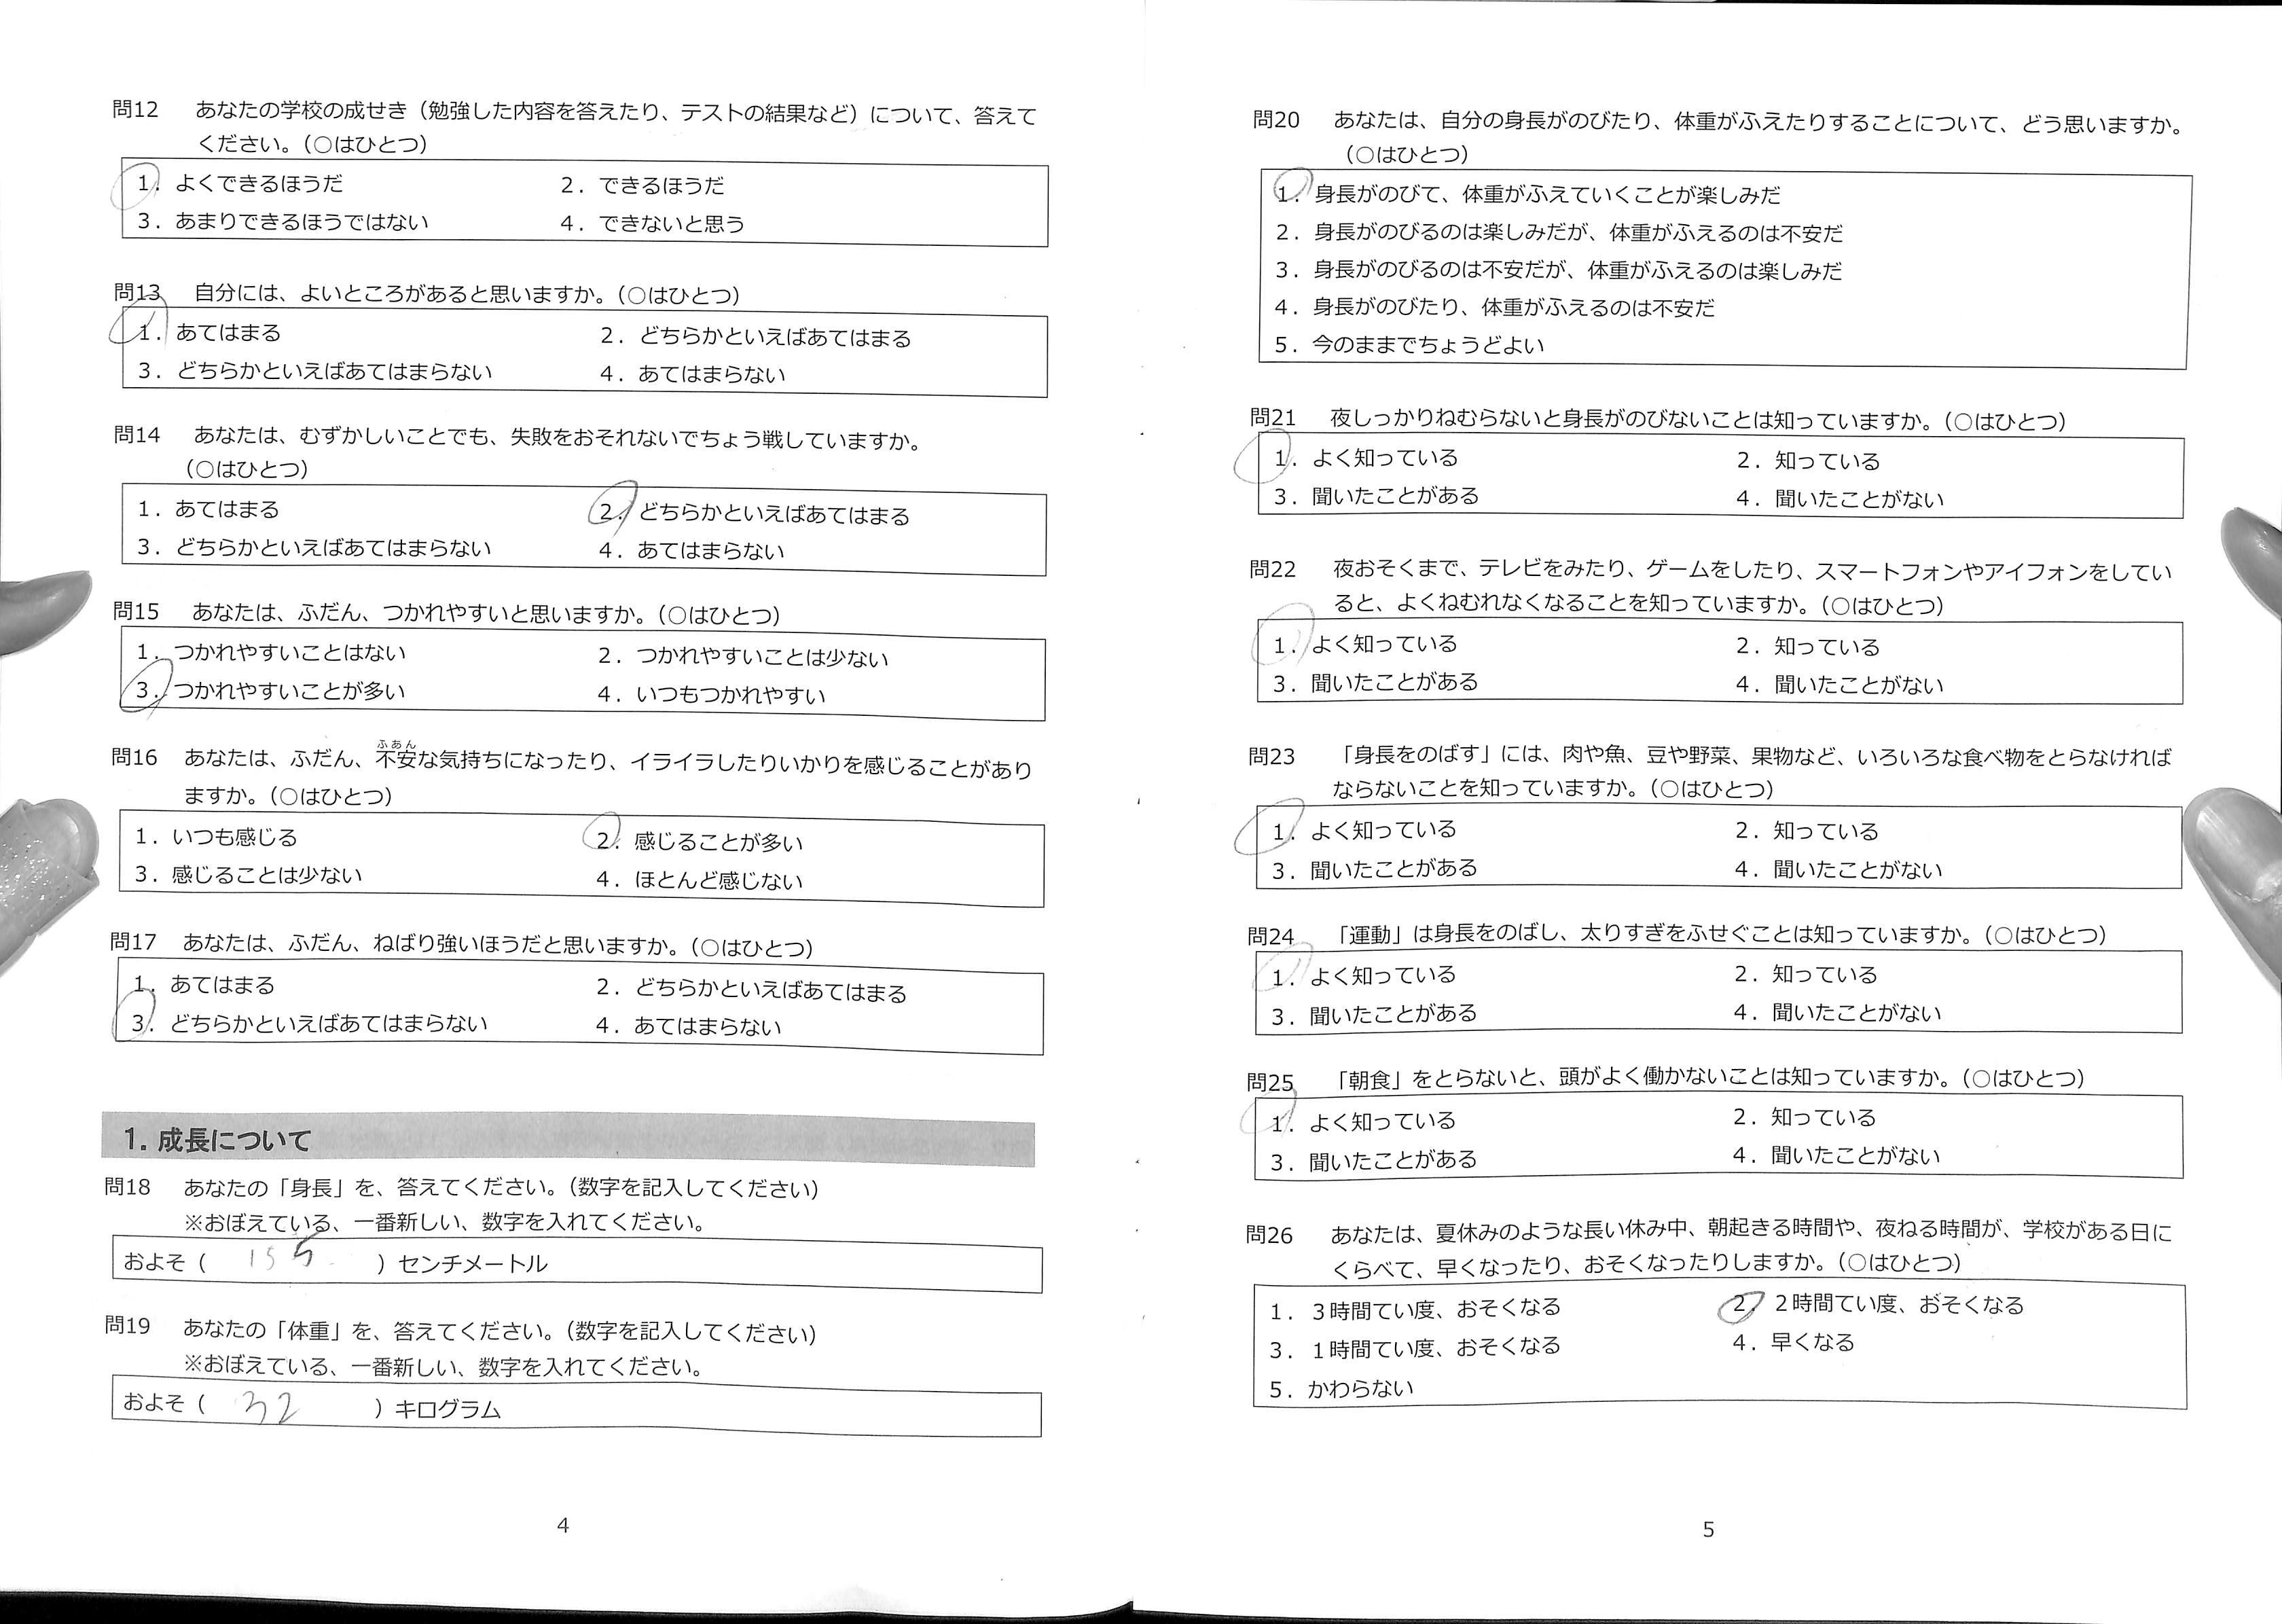 問12 あなたの学校の成せき（勉強した内容を答えたり、テストの結果など）について、答えて
ください。（○はひとつ）
1．よくできるほうだ 2．できるほうだ
3．あまりできるほうではない 4．できないと思う
問13 自分には、よいところがあると思いますか。（○はひとつ）
1．あてはまる 2．どちらかといえばあてはまる
3．どちらかといえばあてはまらない 4．あてはまらない
問14 あなたは、むずかしいことでも、失敗をおそれないでちょう戦していますか。
（○はひとつ）
1．あてはまる 2．どちらかといえばあてはまる
3．どちらかといえばあてはまらない 4．あてはまらない
問15 あなたは、ふだん、つかれやすいと思いますか。（○はひとつ）
1．つかれやすいことはない 2．つかれやすいことは少ない
3．つかれやすいことが多い 4．いつもつかれやすい
ふあん
問16 あなたは、ふだん、不安な気持ちになったり、イライラしたりいかりを感じることがあり
ますか。（○はひとつ）
1．いつも感じる 2．感じることが多い
3．感じることは少ない 4．ほとんど感じない
問17 あなたは、ふだん、ねばり強いほうだと思いますか。（○はひとつ）
1．あてはまる 2．どちらかといえばあてはまる
3．どちらかといえばあてはまらない 4．あてはまらない
1．成長について
問18 あなたの「身長」を、答えてください。（数字を記入してください）
※おぼえている、一番新しい、数字を入れてください。
およそ（ 155 ）センチメートル
問19 あなたの「体重」を、答えてください。（数字を記入してください）
※おぼえている、一番新しい、数字を入れてください。
およそ（ 32 ）キログラム
4
問20 あなたは、自分の身長がのびたり、体重がふえたりすることについて、どう思いますか。
（○はひとつ）
1．身長がのびて、体重がふえていくことが楽しみだ
2．身長がのびるのは楽しみだが、体重がふえるのは不安だ
3．身長がのびるのは不安だが、体重がふえるのは楽しみだ
4．身長がのびたり、体重がふえるのは不安だ
5．今のままでちょうどよい
問21 夜しっかりねむらないと身長がのびないことは知っていますか。（○はひとつ）
1．よく知っている 2．知っている
3．聞いたことがある 4．聞いたことがない
問22 夜おそくまで、テレビをみたり、ゲームをしたり、スマートフォンやアイフォンをしてい
ると、よくねむれなくなることを知っていますか。（○はひとつ）
1．よく知っている 2．知っている
3．聞いたことがある 4．聞いたことがない
問23 「身長をのばす」には、肉や魚、豆や野菜、果物など、いろいろな食べ物をとらなければ
ならないことを知っていますか。（○はひとつ）
1．よく知っている 2．知っている
3．聞いたことがある 4．聞いたことがない
問24 「運動」は身長をのばし、太りすぎをふせぐことは知っていますか。（○はひとつ）
1．よく知っている 2．知っている
3．聞いたことがある 4．聞いたことがない
問25 「朝食」をとらないと、頭がよく働かないことは知っていますか。（○はひとつ）
1．よく知っている 2．知っている
3．聞いたことがある 4．聞いたことがない
問26 あなたは、夏休みのような長い休み中、朝起きる時間や、夜ねる時間が、学校がある日に
くらべて、早くなったり、おそくなったりしますか。（○はひとつ）
1．3時間てい度、おそくなる 2．2時間てい度、おそくなる
3．1時間てい度、おそくなる 4．早くなる
5．かわらない
5